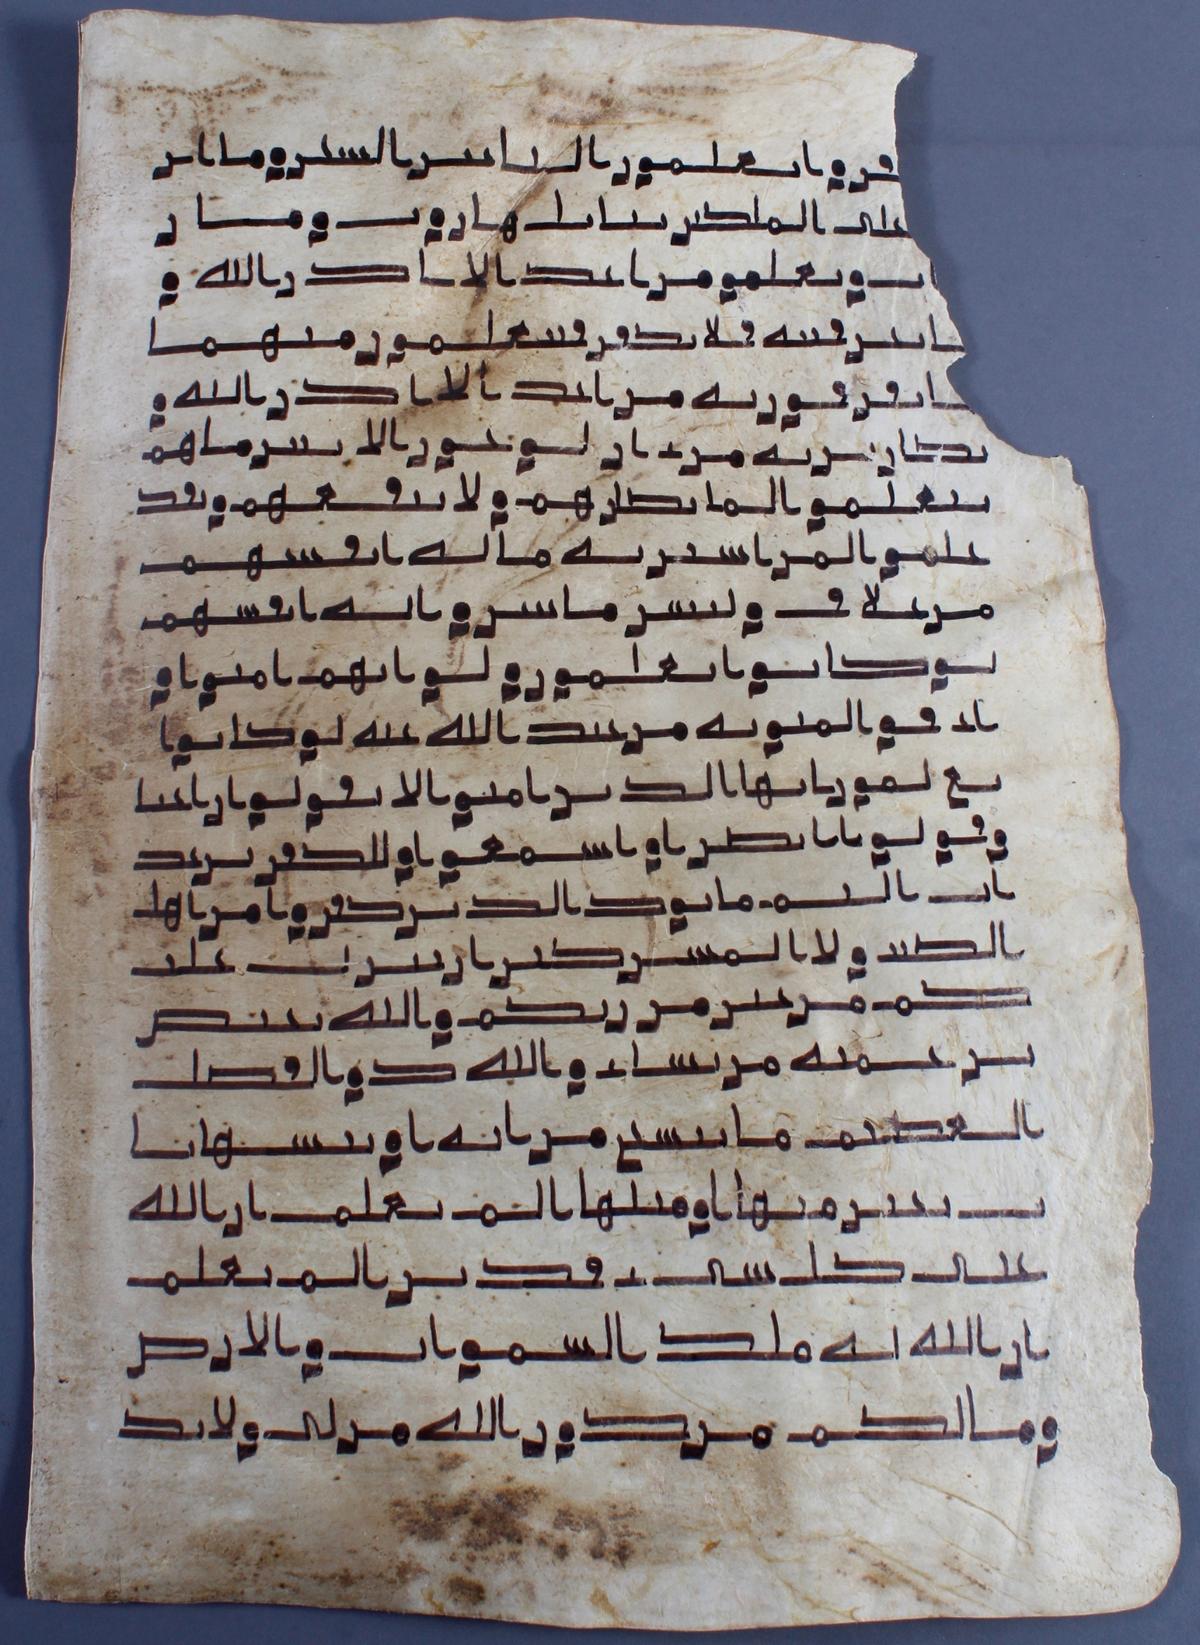 فروا يعلمون الناس السحر وما انز
على الملكين ببابل هاروت ومار
وت من احد الا الله و
نحن فتنة فلا تكفر فيتعلمون منهما
به من احد الا الله و
به ما هم
يتعلموا لما يضارهم ولا ينفعهم ولقد
علموا لمن اشتريه ما له انفسهم
من خلاق ولبئس ما شروا به انفسهم
لو كانوا يعلمون ولو انهم امنوا و
اتقوا لمثوبة من عند الله خير لو كانوا
يعلمون يايها الذين امنوا لا تقولوا راعنا
وقولوا انظرنا واسمعوا وللكفرين عذ
اب اليم ما يود الذين كفروا من اهل
الكتب ولا المشركين ان ينزل علي
كم من خير من ربكم والله يختص
برحمته من يشاء والله ذو الفضل
العظيم ما ننسخ من اية او ننسها نا
ت بخير منها او مثلها الم تعلم ان الله
على كل شىء قدير الم تعلم
ان الله له ملك السموات والارض
وما لكم من دون الله من ولى ولا